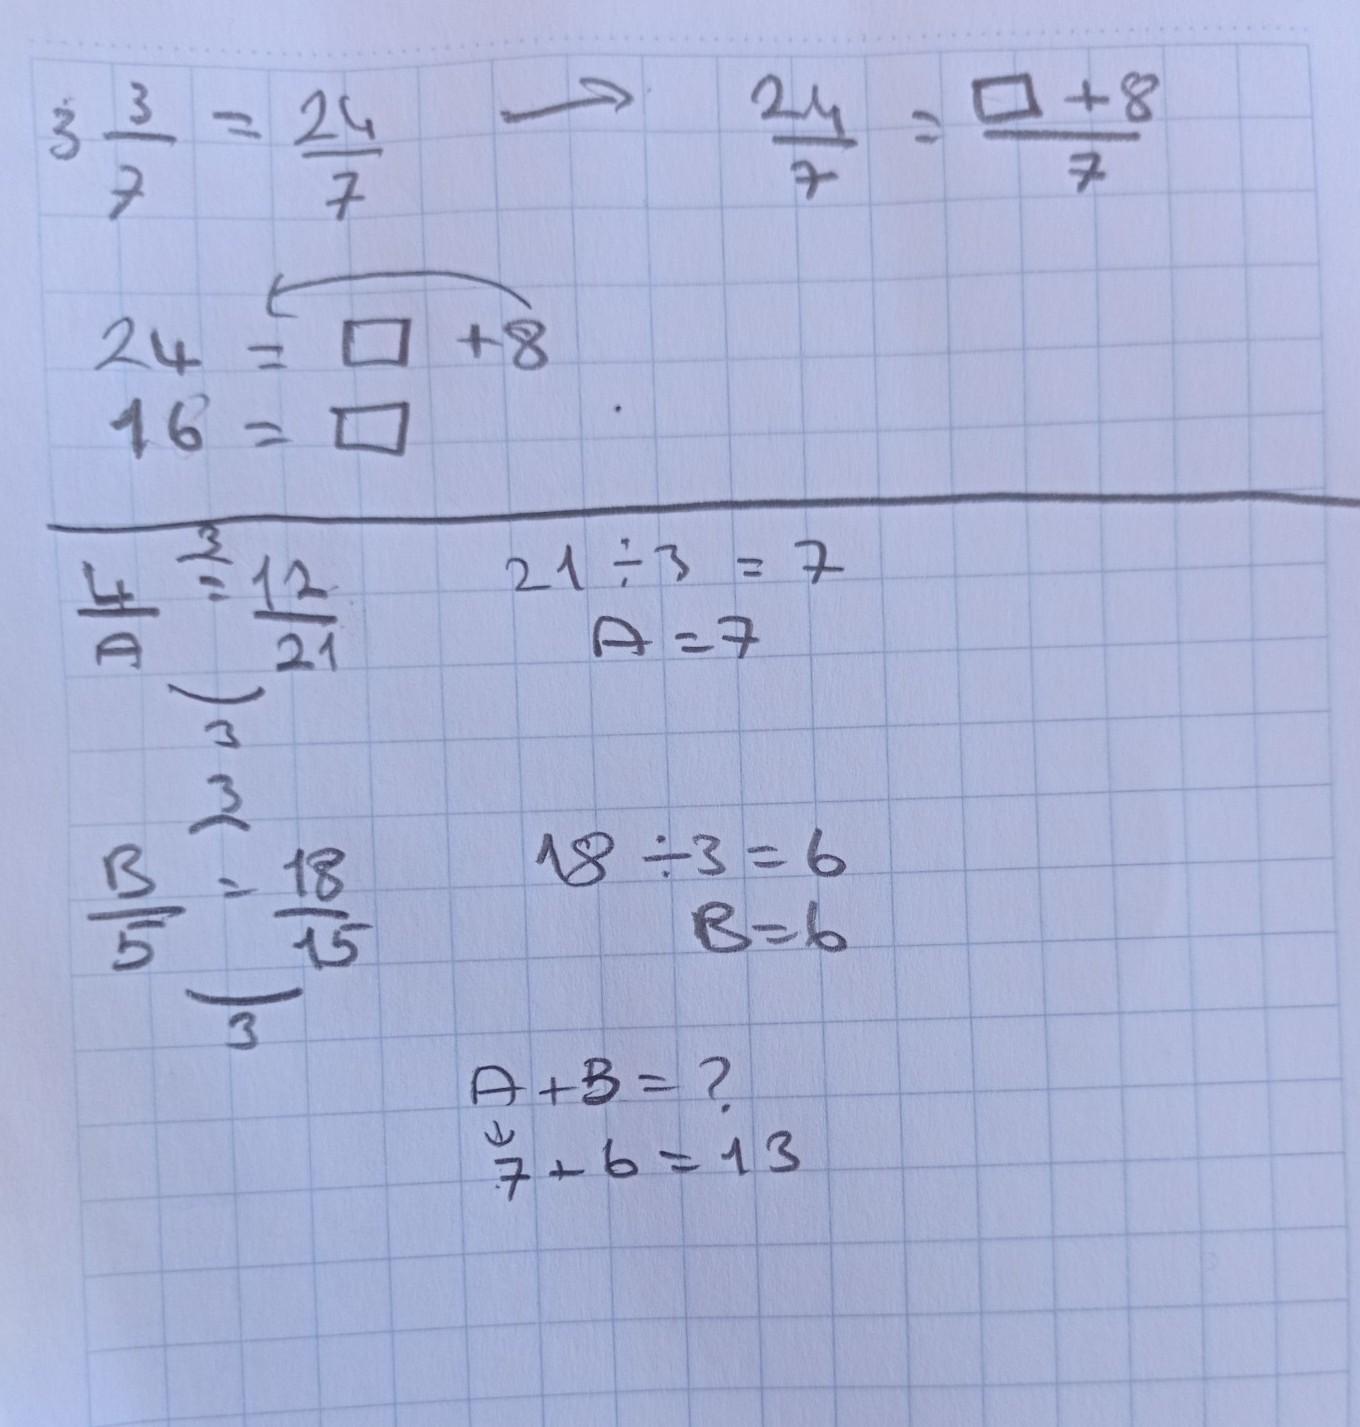 3 3/7 = 24/7 → 24/7 = □ + 8/7
24 = □ + 8
16 = □
3
4/A = 12/21
21 ÷ 3 = 7
A = 7
3
3
B/5 = 18/15
18 ÷ 3 = 6
B = 6
3
A + B = ?
↓
7 + 6 = 13